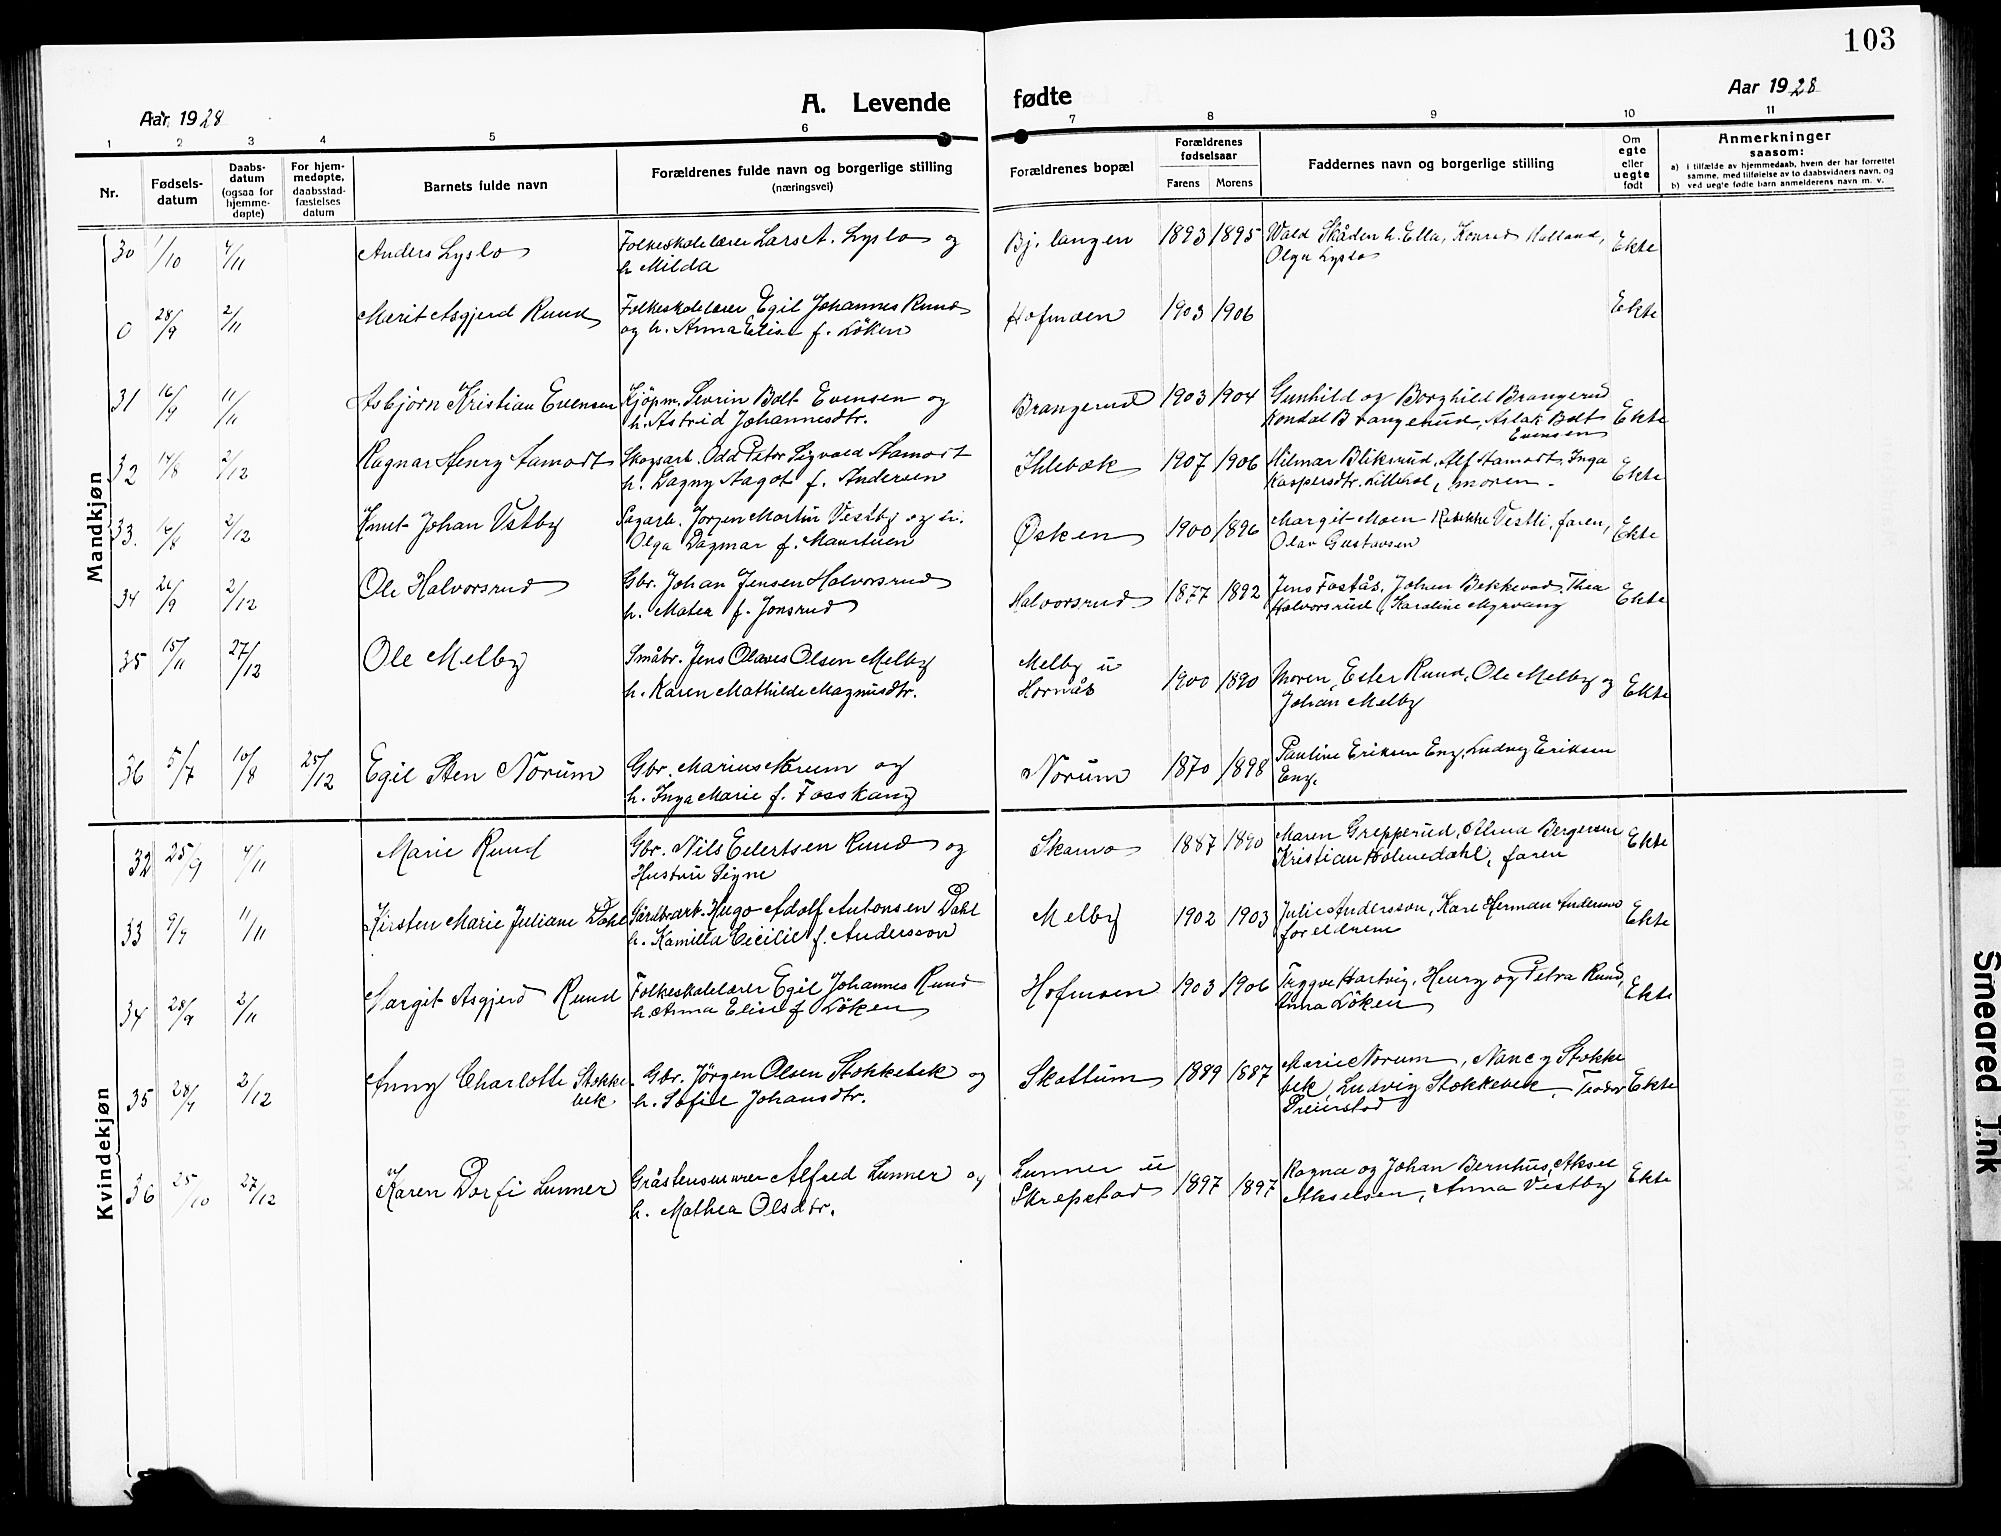 103
Aar 1928
A. Levende fødte
Aar 1928
1 2 3 4 5 6 7 8 9 10 11
Nr.
Fødsels-
datum
Daabs-
datum
(ogsaa for
hjemme-
døpte)
For hjem-
medøpte,
daabsstad-
fæstelses
datum
Barnets fulde navn
Forældrenes fulde navn og borgerlige stilling
(næringsvei)
Forældrenes bopæl
Forældrenes
fødselsaar
Farens Morens
Faddernes navn og borgerlige stilling
Om
egte
eller
uegte
født
Anmerkninger
saasom:
a) i tilfælde av hjemmedaab, hvem der har forrettet
samme, med tilføielse av to daabsvidners navn, og
b) ved uegte fødte barn anmelderens navn m. v.
Mandkjøn
30 1/10 4/11 Anders Lyslo Folkeskolelærer Lars A. Lyslo og Bj. langen 1893 1895 Wald Skåden h. Ella, Konrad Holland, Ekte
h Milda Olga Lyslo
0 28/9 2/11 Merit Asgjerd Ruud Folkeskolelærer Egil Johannes Ruud Hofmoen 1903 1906 Ekte
og h. Anna Elise f. Löken
31 16/9 11/11 Asbjörn Kristian Evensen Kjöpm. Sevrin Bolt Evensen og Brangerud 1903 1904 Gunhild og Borghild Brangerud Ekte
h. Astrid Johannesdtr. Kondal Brangerud, Aslak Bolt
Evensen
32 14/8 2/12 Ragnar Henry Aamodt Skogsarb. Odd Peter Sigvald Aamodt Ihlebæk 1907 1906 Hilmar Bliksrud, Alf Aamodt, Inga Ekte
h. Dagny Aagot f. Andersen Kaspersdtr. Lillehol, moren.
33. 14/8 2/12 Knut Johan Vestby Sagarb. Jørgen Martin Vestby og h. Øsken 1900 1896 Margit Moen Rebekka Vestli, faren, Ekte
Olga Dagmar f. Maurtuen Olav Gustavsen
34 26/9 2/12 Ole Halvorsrud Gbr. Johan Jensen Halvorsrud Halvorsrud 1877 1892 Jens Fostås, Johan Bekkevad, Thea Ekte
h. Matea f. Jonsrud Halvorsrud, Karoline Myrvang
35 15/11 27/12 Ole Melby Småbr. Jens Olaves Olsen Melby Melby u 1900 1890 Moren, Ester Ruud, Ole Melby og Ekte
h. Karen Mathilde Magnusdtr. Hornås Johan Melby
36 5/7 10/8 25/12 Egil Sten Norum Gbr. Marius Norum og Norum 1870 1898 Pauline Eriksen Eng, Ludvig Eriksen
h. Inga Marie f. Fosskang Eng.
Kvindekjøn
32 25/9 4/11 Marie Ruud Gbr. Nils Eilertsen Ruud og 1887 1890 Maren Grepperud, Bergersen Ekte
Hustru Signe Kristian Holmedahl, faren
33 9/7 11/11 Kirsten Marie Juliane Dahl Gårdbrarb. Hugo Adolf Antonsen Dahl Melby 1902 1903 Julie Andersson, Kare Herman Andersson Ekte
h. Kamilla Cicilie f. Andersson foreldrene
34 28/9 2/11 Margit Asgjerd Ruud Folkeskolelærer Egil Johannes Ruud Hofmoen 1903 1906 Trygve Hartvig, Henry og Petra Ruud, Ekte
h. Anna Elise f. Löken Anna Löken
35 28/7 2/12 Anny Charlotte Stokke- Gbr. Jörgen Olsen Stokkebek og Skattum 1889 1887 Marie Norum, Nancy Stokke
bek. h. Sofie Johansdtr. bek, Ludvig Stokkebek, Teodor Ekte
Preierstad
36 25/10 27/12 Karen Dorfi Lunner Gråstensmurer Alfred Lunner og Lunner u 1897 1897 Ragna og Johan Bernhus, Aksel Ekte
h. Mathea Olsdtr. Skrepstad Akselsen, Anna Vestby
Smeared Ink